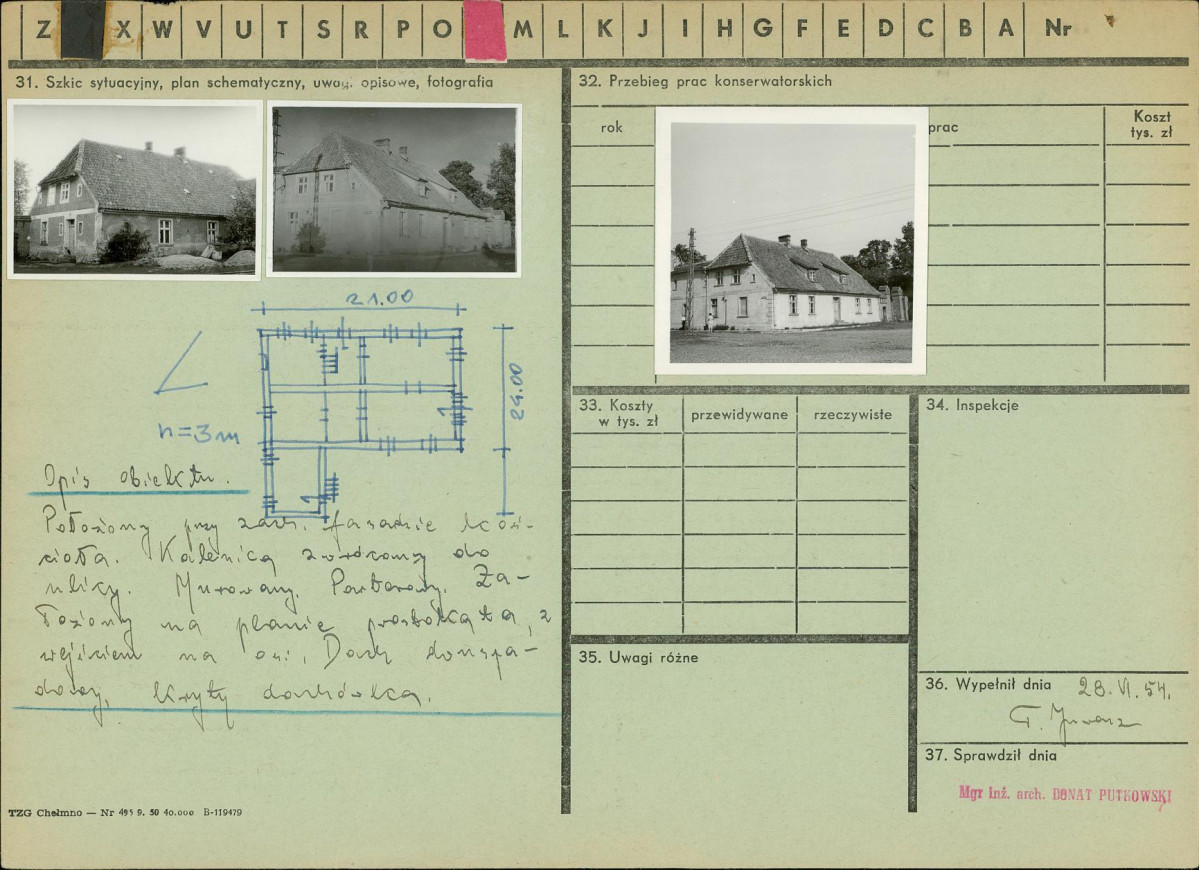 Z X W V U T S R P O M L K J I H G F E D C B A Nr
31. Szkic sytuacyjny, plan schematyczny, uwagi opisowe, fotografia
21.00
24.00
h=3m
Opis obiektu.
Położony przy zach. fasadzie koś-
cioła. Kalenicą zwrócony do
ulicy. Murowany. Parterowy. Za-
łożony na planie prostokąta, z
wejściem na osi. Dach dwuspa-
dowy, kryty dachówką.
TZG Chełmno — Nr 495 9. 50 40.000 B-119479
32. Przebieg prac konserwatorskich
rok
prac
Koszt
tys. zł
33. Koszty
w tys. zł
przewidywane
rzeczywiste
34. Inspekcje
35. Uwagi różne
36. Wypełnił dnia 28.VI.54.
37. Sprawdził dnia
Mgr inż. arch. DONAT PUTKOWSKI